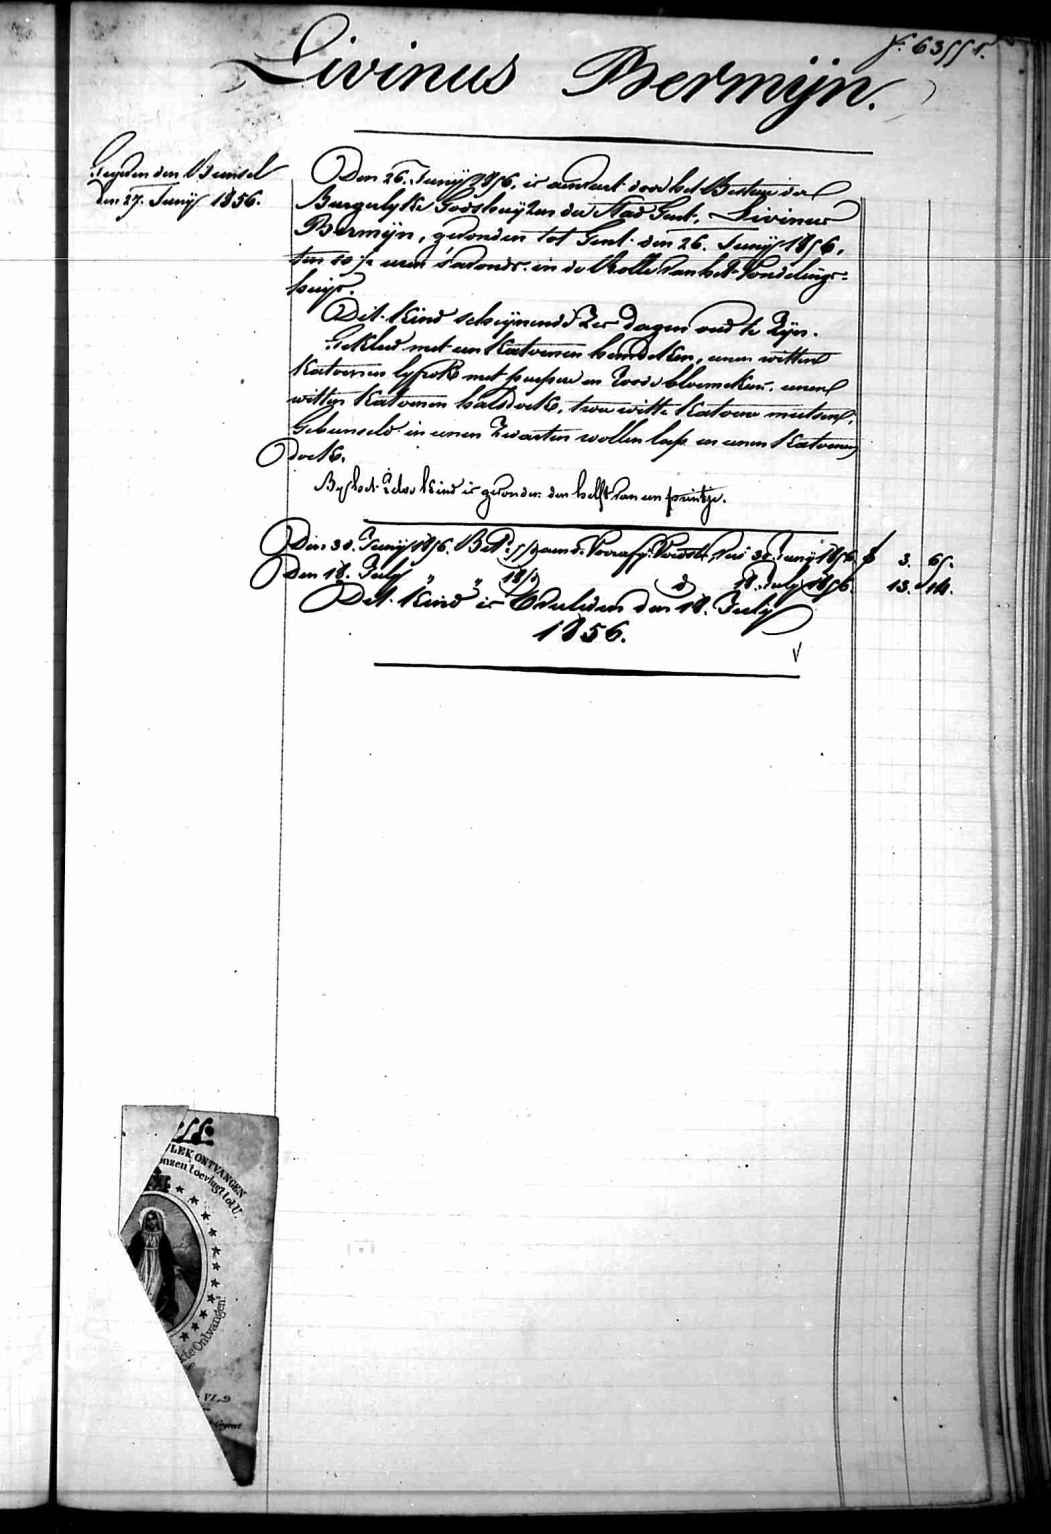 f. 63551.
Livinus Bermijn.
Gegeven den Bunsel
den 27. Junij 1856.
Den 26. Junij 1856, is aenveert door het Bestuur der
Burgerlyke Godshuyzen der Stad Gent, Livinus
Bermijn, gevonden tot Gent den 26. Junij 1856,
ten 10 ½ uren s'avonds in de Rolle van het Vondelings-
huys.
Dit Kind schynende zes dagen oud te zyn.
Gekleed met een Katoenen hemdeken, eenen witten
Katoenen lyfrok met purpere en roode bloemekens, eenen
witten Katoenen halsdoek, twee witte Katoene mutsen,
Gebunseld in eenen zwarten wollen lap en eenen Katoenen
doek.
By het zelve Kind is gevonden den helft van een printje.
Den 30. Junij 1856. Bet. 30 Junij 1856 f 3. 65.
Den 18. July " " 18 July 1856. 13. 14.
Dit Kind is Overleden den 18. July
1856.
VLEK ONTVANGEN
onzen toevlugt tot U.
Ontvangen